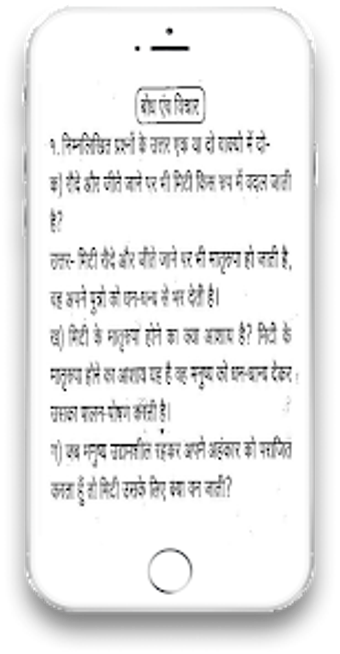 बोध एंव विचार
१. निम्नलिखित प्रश्नों के उत्तर एक या दो वाक्यो में दो-
क) रौंदे और जोते जाने पर भी मिटी किस रूप में बदल जाती
है?
उत्तर- मिटी रौंदे और जोते जाने पर भी मातृरुपा हो जाती है,
वह अपने पुत्रो को धन-धन्य से भर देती है।
ख) मिटी के मातृरुपा होने का क्या आशाय है? मिटी के
मातृरुपा होने का आशाय यह है वह मनुष्य को धन-धान्य देकर
उसका पालन-पोषण करती है।
ग) जब मनुष्य उद्यमशील रहकर अपने अहंकार को पराजित
करता हूँ तो मिटी उसके लिए क्या वन जाती?